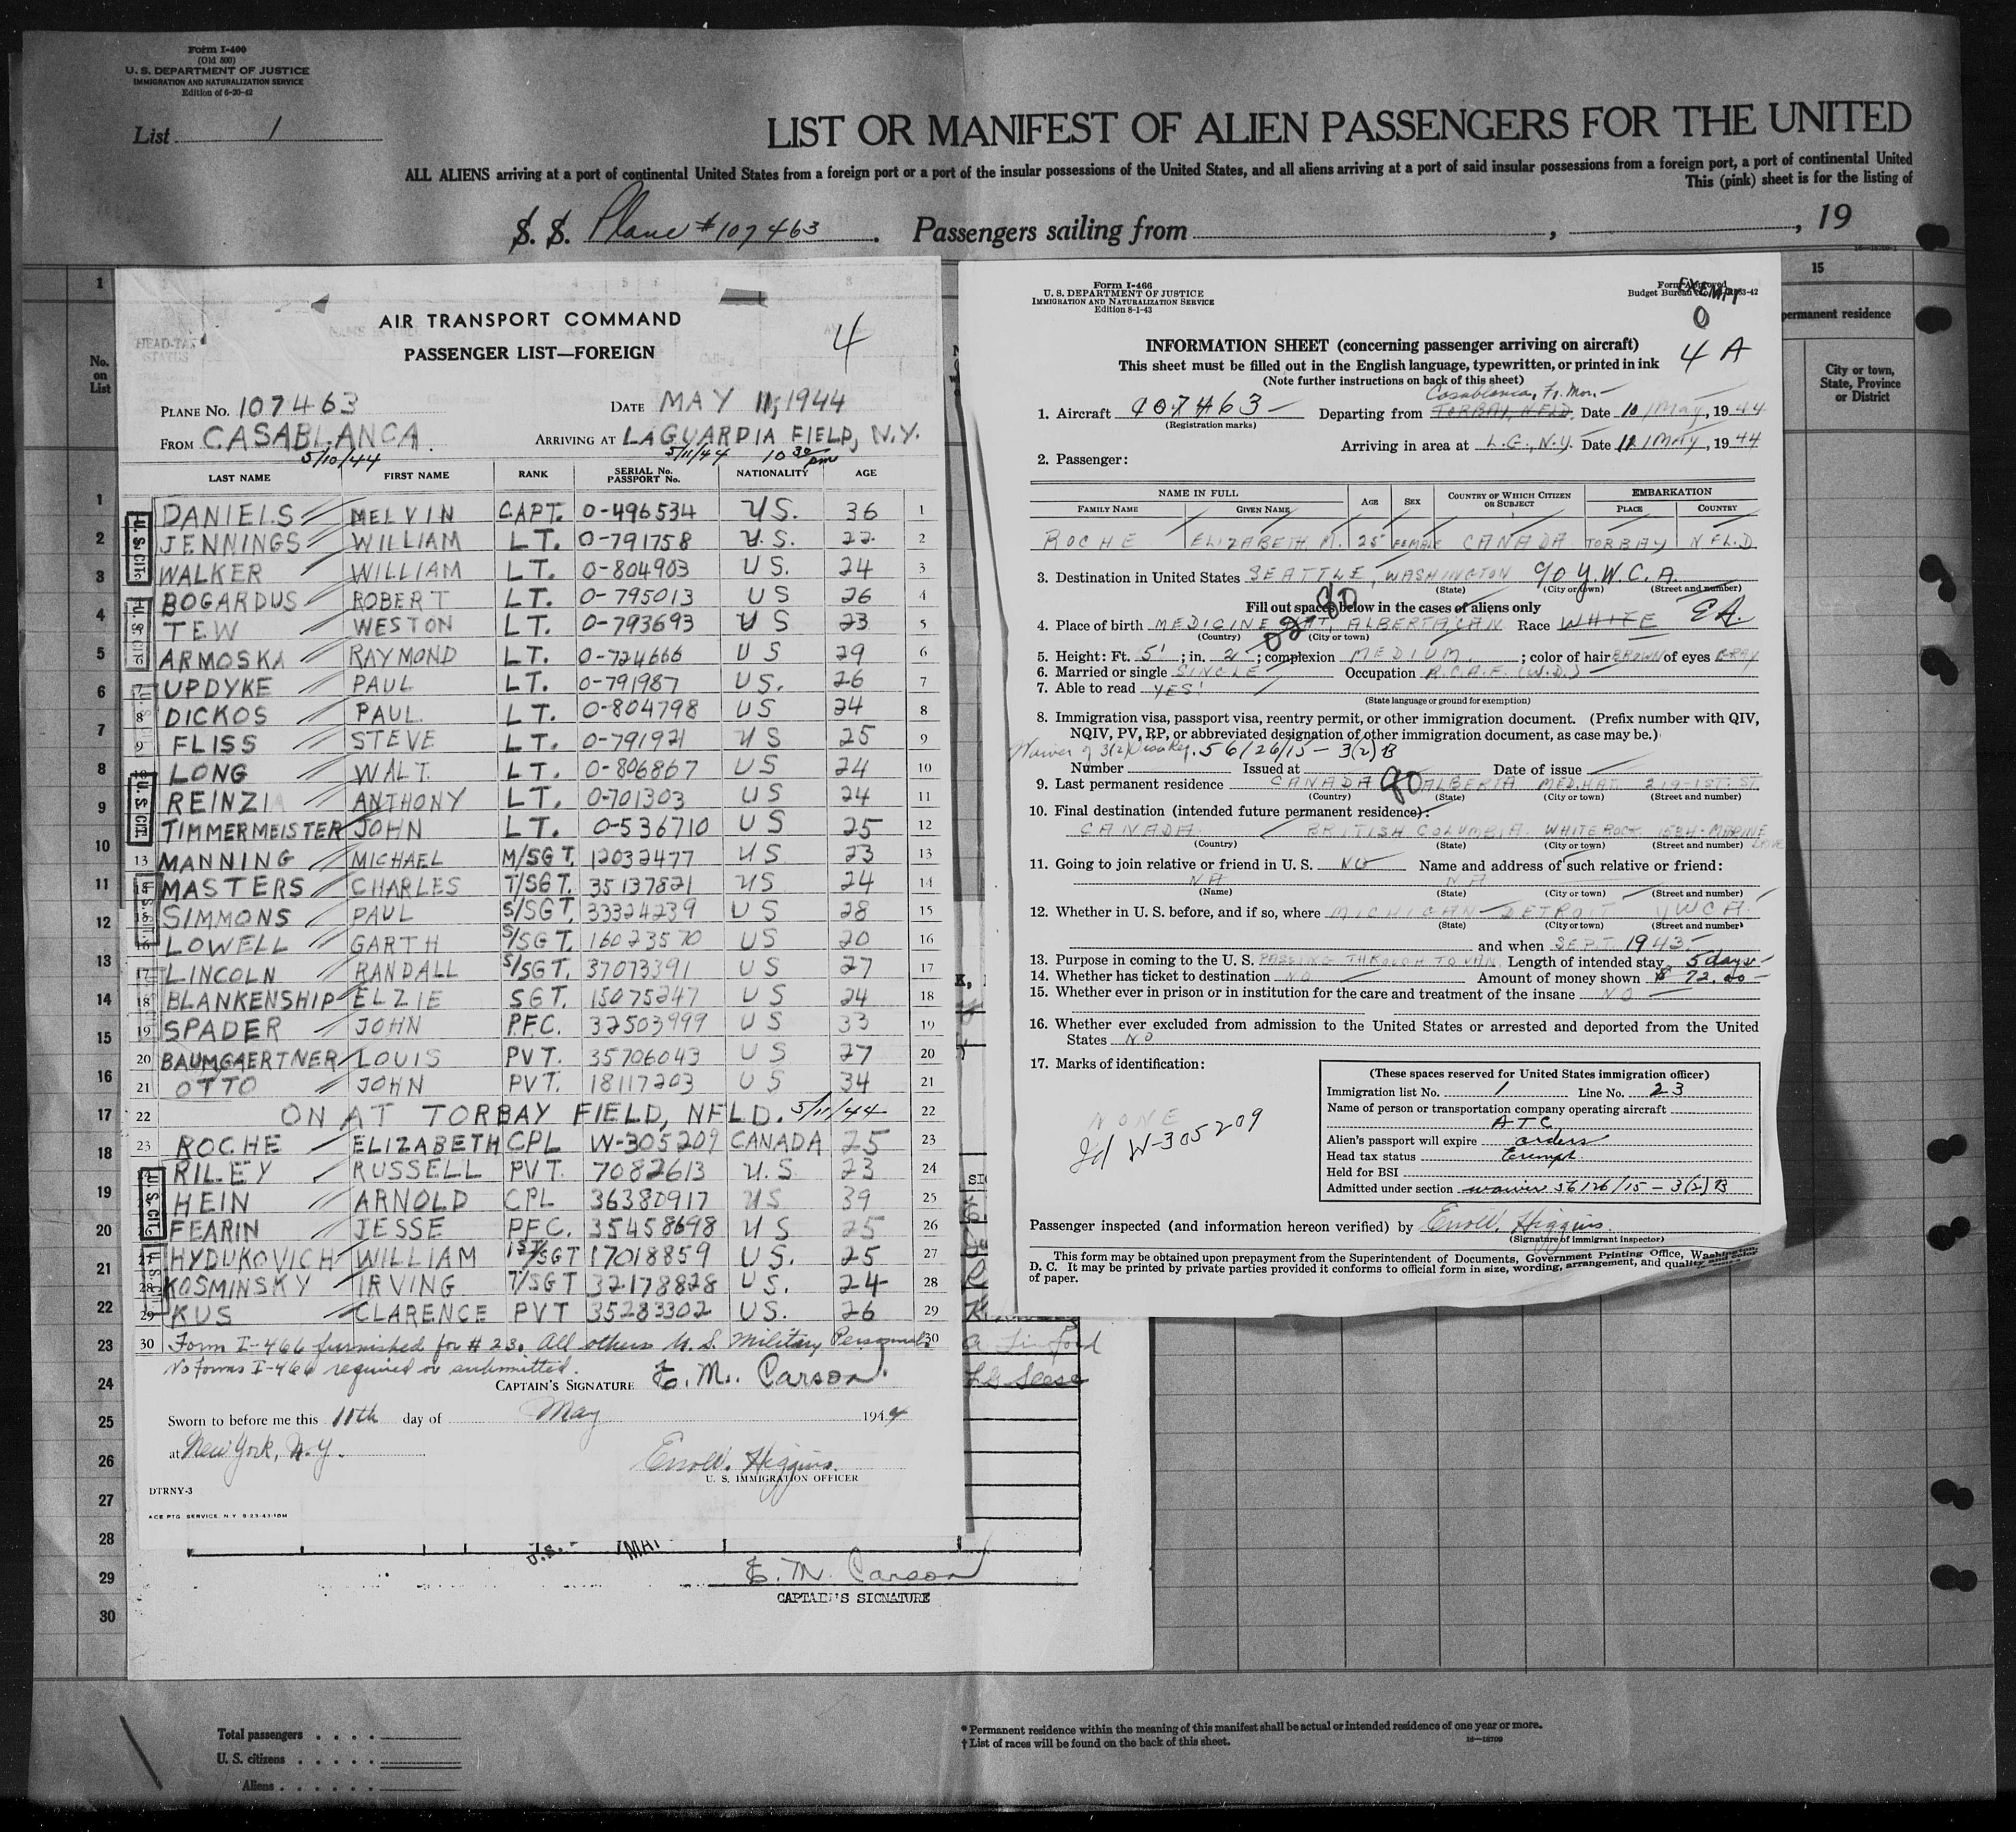 Form I-400
(Old 500)
U. S. DEPARTMENT OF JUSTICE
IMMIGRATION AND NATURALIZATION SERVICE
Edition of 6-20-42
List 1
LIST OR MANIFEST OF ALIEN PASSENGERS FOR THE UNITED
ALL ALIENS arriving at a port of continental United States from a foreign port or a port of the insular possessions of the United States, and all aliens arriving at a port of said insular possessions from a foreign port, a port of continental United
This (pink) sheet is for the listing of
S. S. Plane #107463. Passengers sailing from , , 19
1
No. on List
HEAD-TAX STATUS
AIR TRANSPORT COMMAND
PASSENGER LIST—FOREIGN
4
PLANE NO. 107463 DATE MAY 11, 1944
FROM CASABLANCA ARRIVING AT LAGUARDIA FIELD, N.Y.
5/10/44 5/11/44 10 30 pm
LAST NAME FIRST NAME RANK SERIAL No. PASSPORT No. NATIONALITY AGE
1 DANIELS MELVIN CAPT. 0-496534 U.S. 36 1
2 JENNINGS WILLIAM LT. 0-791758 U.S. 22 2
3 WALKER WILLIAM LT. 0-804903 US. 24 3
4 BOGARDUS ROBERT LT. 0-795013 US 26 4
5 TEW WESTON LT. 0-793693 US 23 5
6 ARMOSKA RAYMOND LT. 0-724666 US 29 6
7 UPDYKE PAUL LT. 0-791987 US. 26 7
8 DICKOS PAUL. LT. 0-804798 US 24 8
9 FLISS STEVE LT. 0-791921 US 25 9
10 LONG WALT. LT. 0-806867 US 24 10
REINZI ANTHONY LT. 0-701303 US 24 11
TIMMERMEISTER JOHN LT. 0-536710 US 25 12
13 MANNING MICHAEL M/SGT. 12032477 US 23 13
MASTERS CHARLES T/SGT. 35137821 US 24 14
SIMMONS PAUL S/SGT. 33324239 US 28 15
16 LOWELL GARTH S/SGT. 16023570 US 20 16
17 LINCOLN RANDALL S/SGT. 37073391 US 27 17
18 BLANKENSHIP ELZIE SGT. 15075247 US 24 18
19 SPADER JOHN PFC. 32503999 US 33 19
20 BAUMGAERTNER LOUIS PVT. 35706043 US 27 20
21 OTTO JOHN PVT. 18117203 US 34 21
22 ON AT TORBAY FIELD, NFLD. 5/11/44 22
23 ROCHE ELIZABETH CPL W-305209 CANADA 25 23
RILEY RUSSELL PVT. 7082613 U.S. 23 24
HEIN ARNOLD CPL 36380917 US 39 25
FEARIN JESSE PFC. 35458698 US 25 26
HYDUKOVICH WILLIAM 1ST/SGT 17018859 US. 25 27
28 KOSMINSKY IRVING T/SGT 32178828 US. 24 28
29 KUS CLARENCE PVT 35283302 US. 26 29
30 Form I-466 furnished for # 23. All others U.S. Military Personnel 30
No Forms I-466 required or submitted.
CAPTAIN'S SIGNATURE E. M. Carson.
Sworn to before me this 11th day of May 1944
at New York, N.Y.
Errol W. Higgins.
U. S. IMMIGRATION OFFICER
DTRNY-3
ACE PTG. SERVICE. N.Y. 8-23-43-10M
E. M. Carson
CAPTAIN'S SIGNATURE
U.S. CIT.
Form I-466
U. S. DEPARTMENT OF JUSTICE
IMMIGRATION AND NATURALIZATION SERVICE
Edition 8-1-43
Form Approved
EXEMPT
0
4 A
INFORMATION SHEET (concerning passenger arriving on aircraft)
This sheet must be filled out in the English language, typewritten, or printed in ink
(Note further instructions on back of this sheet)
Casablanca, Fr. Mor.
1. Aircraft 107463 Departing from TORBAY, NFLD. Date 10 MAY, 1944
(Registration marks)
Arriving in area at L.G., N.Y. Date 11 MAY, 1944
2. Passenger:
NAME IN FULL AGE SEX COUNTRY OF WHICH CITIZEN OR SUBJECT EMBARKATION
FAMILY NAME GIVEN NAME PLACE COUNTRY
ROCHE ELIZABETH M. 25 FEMALE CANADA TORBAY NFLD
3. Destination in United States SEATTLE, WASHINGTON c/o Y.W.C.A.
(State) (City or town) (Street and number)
Fill out spaces below in the cases of aliens only
4. Place of birth MEDICINE HAT, ALBERTA, CAN Race WHITE
(Country) (City or town)
5. Height: Ft. 5' ; in. 2 ; complexion MEDIUM ; color of hair BROWN of eyes GRAY
6. Married or single SINGLE Occupation R.C.A.F. (W.D.)
7. Able to read YES
(State language or ground for exemption)
8. Immigration visa, passport visa, reentry permit, or other immigration document. (Prefix number with QIV,
NQIV, PV, RP, or abbreviated designation of other immigration document, as case may be.)
Waiver of 3(2) 56126/15 - 3(2)B
Number Issued at Date of issue
9. Last permanent residence CANADA ALBERTA MED. HAT. 219-1ST. ST.
(Country) (State) (City or town) (Street and number)
10. Final destination (intended future permanent residence):
CANADA BRITISH COLUMBIA WHITE ROCK 1584-MARINE DRIVE
(Country) (State) (City or town) (Street and number)
11. Going to join relative or friend in U. S. NO Name and address of such relative or friend:
NA NA
(Name) (State) (City or town) (Street and number)
12. Whether in U. S. before, and if so, where MICHIGAN DETROIT YWCA
(State) (City or town) (Street and number)
and when SEPT. 1943
13. Purpose in coming to the U. S. PASSING THROUGH TO VAN. Length of intended stay 5 days
14. Whether has ticket to destination NO Amount of money shown $ 72.00
15. Whether ever in prison or in institution for the care and treatment of the insane NO
16. Whether ever excluded from admission to the United States or arrested and deported from the United
States NO
17. Marks of identification:
NONE
Id W-305209
(These spaces reserved for United States immigration officer)
Immigration list No. 1 Line No. 23
Name of person or transportation company operating aircraft
ATC
Alien's passport will expire orders
Head tax status Exempt
Held for BSI
Admitted under section waiver 56126/15 - 3(2)B
Passenger inspected (and information hereon verified) by Errol W. Higgins
(Signature of immigrant inspector)
This form may be obtained upon prepayment from the Superintendent of Documents, Government Printing Office, Washington,
D. C. It may be printed by private parties provided it conforms to official form in size, wording, arrangement, and quality and color
of paper.
15
permanent residence
City or town, State, Province or District
1
2
3
4
5
6
7
8
9
10
11
12
13
14
15
16
17
18
19
20
21
22
23
24
25
26
27
28
29
30
Total passengers
U. S. citizens
Aliens
* Permanent residence within the meaning of this manifest shall be actual or intended residence of one year or more.
† List of races will be found on the back of this sheet.